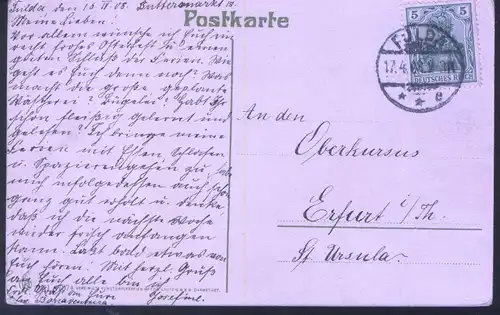 Fulda den 16 IV 08. Buttermarkt
Postkarte
Meine Lieben!
Vor allem wünsche ich Euch ein
recht frohes Osterfest u. einen
guten Schluß der Ferien. Wie
geht es Euch denn noch? Was
macht die große geplante
Wäscherei? Bügelei? Habt Ihr
schon fleißig gelernt und
gelesen? Ich bringe meine
Ferien mit Essen, Schlafen
u. Spazierengehen zu, habe
mich infolgedessen auch schon
ganz gut erholt u. denke
daß ich die nächste Woche
wieder frisch anfangen
kann. Laßt bald etwas von
Euch hören! Mit herzl. Gruß
an Euch alle bin ich
Eure
Josefine.
Bonaventura
5
FULDA
17.4.
DEUTSCHES REICH
* * e
An den
Oberkursus
Erfurt i/Th.
St. Ursula.